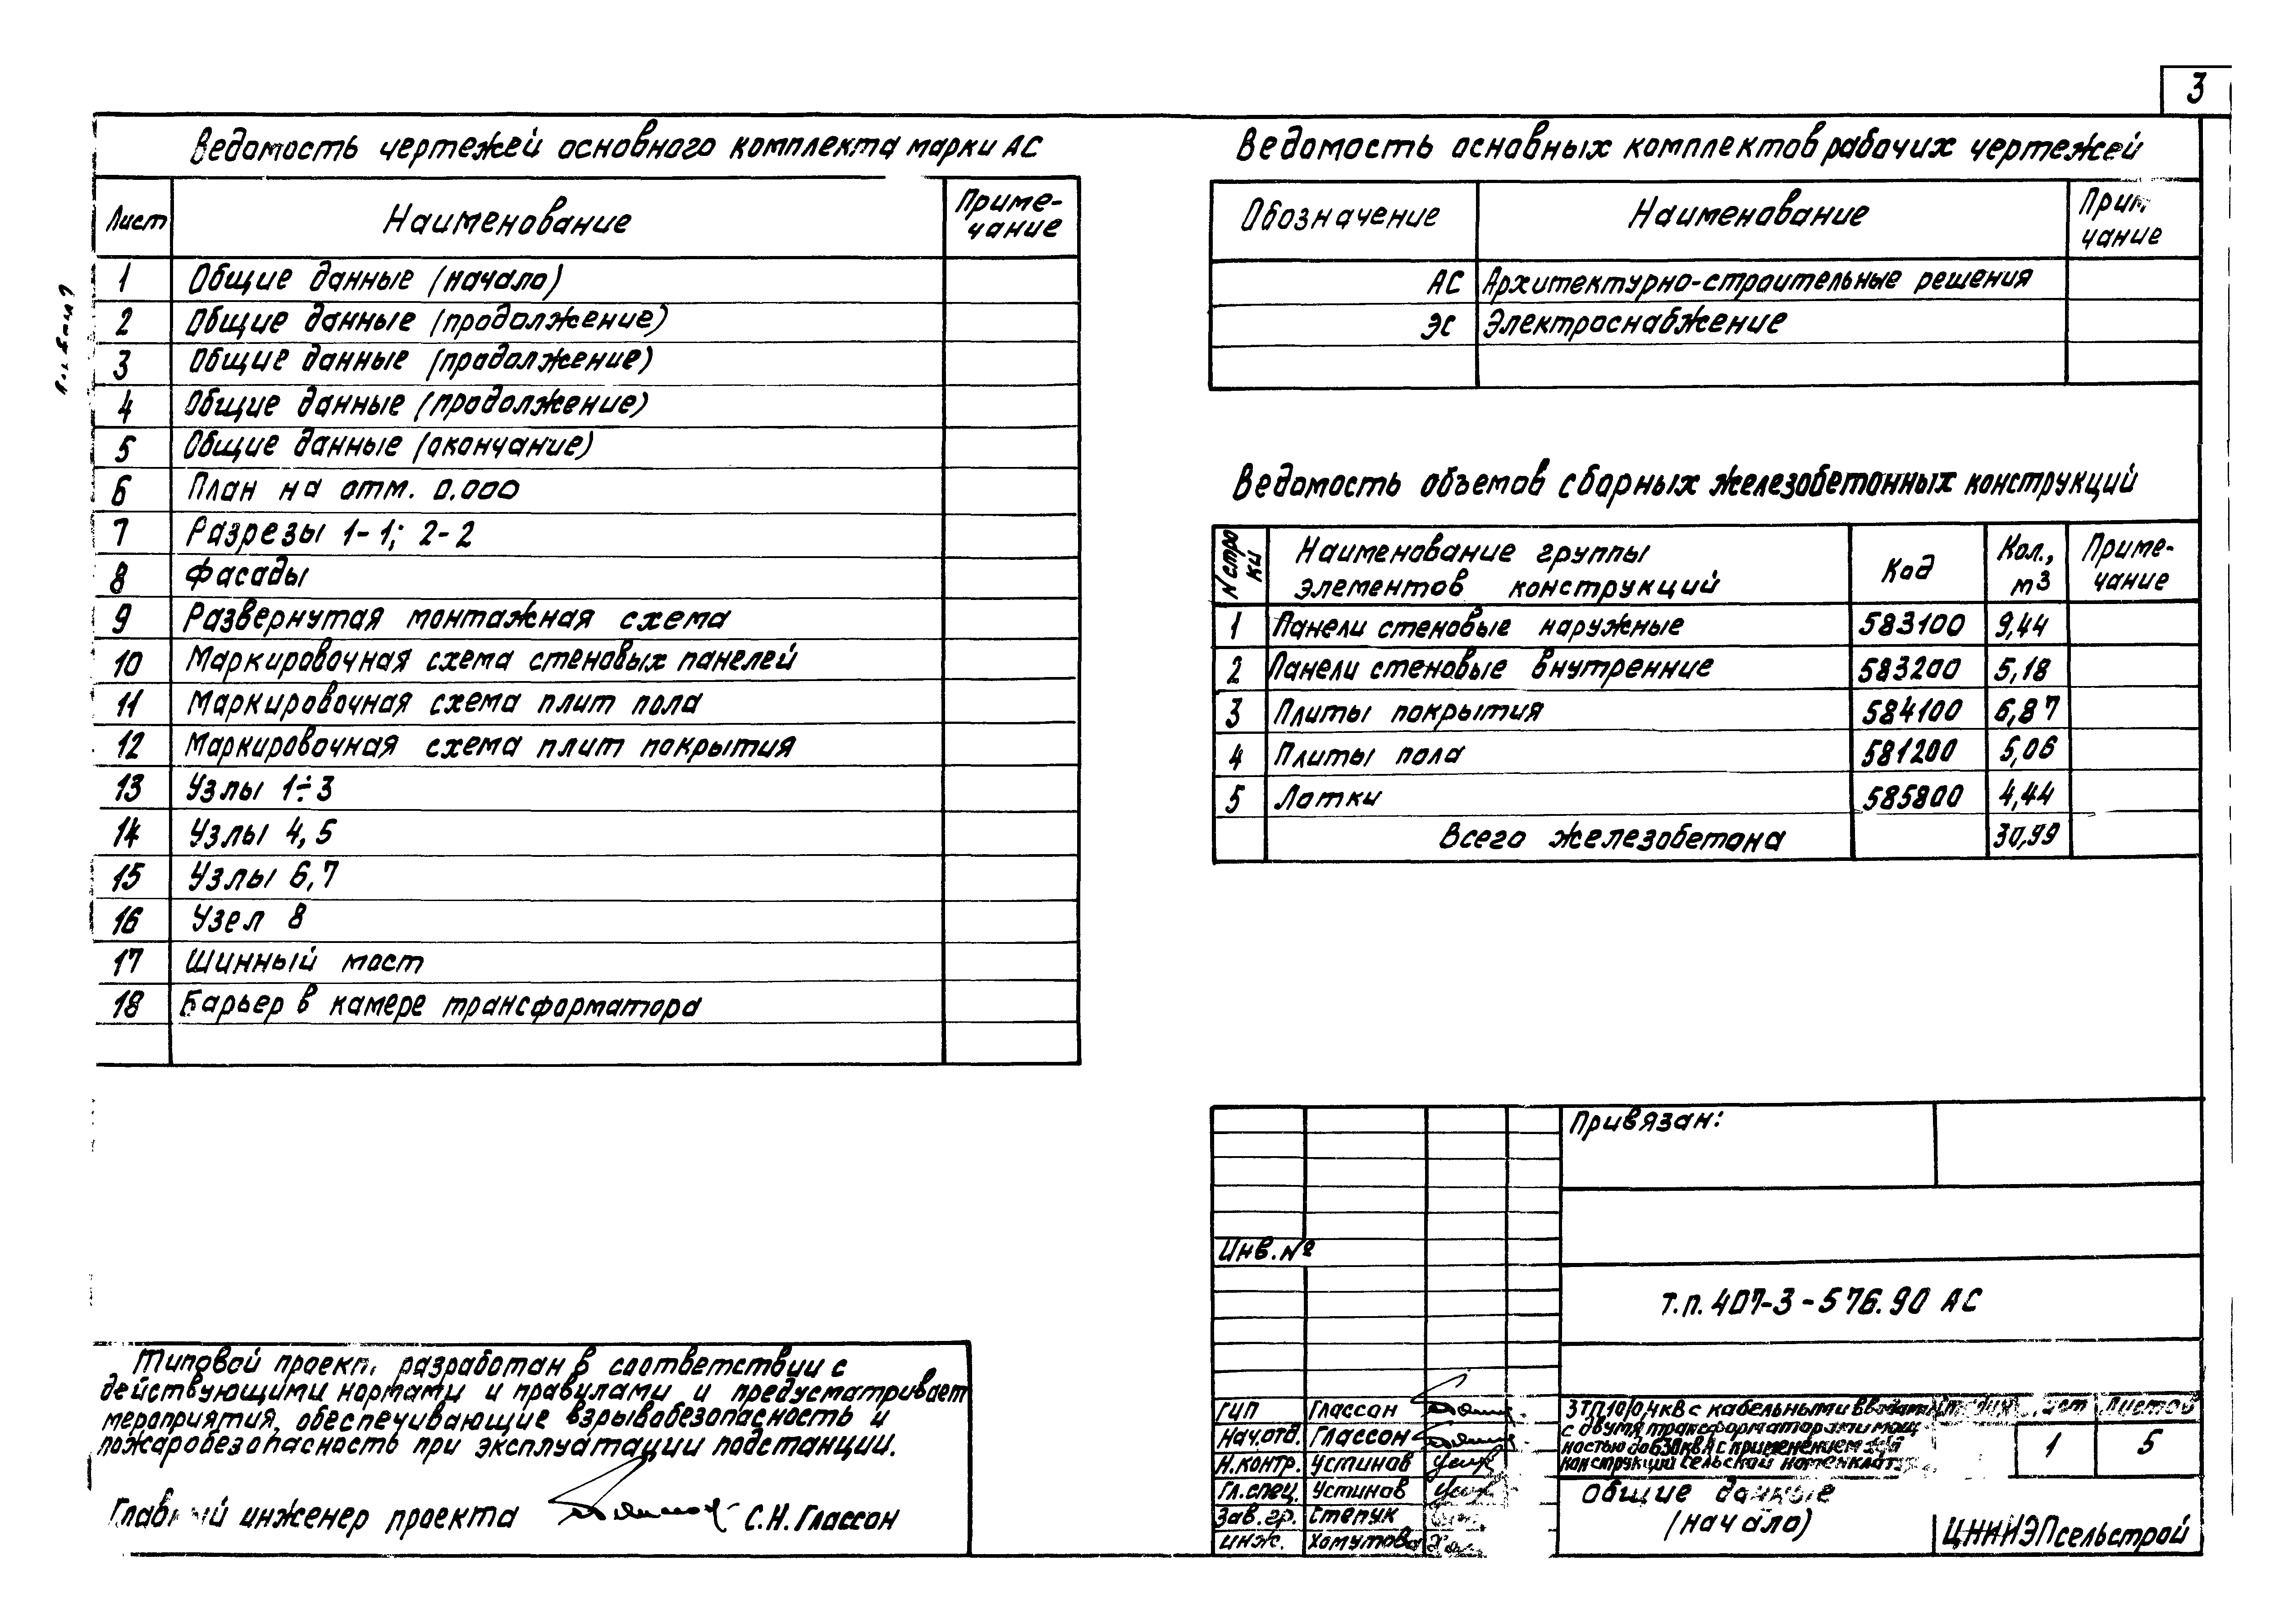 3
Ведомость чертежей основного комплекта марки АС
Лист Наименование Приме-
чание
1 Общие данные (начало)
2 Общие данные (продолжение)
3 Общие данные (продолжение)
4 Общие данные (продолжение)
5 Общие данные (окончание)
6 План на отм. 0.000
7 Разрезы 1-1; 2-2
8 Фасады
9 Развернутая монтажная схема
10 Маркировочная схема стеновых панелей
11 Маркировочная схема плит пола
12 Маркировочная схема плит покрытия
13 Узлы 1÷3
14 Узлы 4,5
15 Узлы 6,7
16 Узел 8
17 Шинный мост
18 Барьер в камере трансформатора
Ведомость основных комплектов рабочих чертежей
Обозначение Наименование Прим
чание
АС Архитектурно-строительные решения
ЭС Электроснабжение
Ведомость объемов сборных железобетонных конструкций
N стро
ки
Наименование группы
элементов конструкций
Код
Кол.,
м3
Приме-
чание
1 Панели стеновые наружные 583100 9,44
2 Панели стеновые внутренние 583200 5,18
3 Плиты покрытия 584100 6,87
4 Плиты пола 581200 5,06
5 Лотки 585800 4,44
Всего железобетона 30,99
Типовой проект разработан в соответствии с
действующими нормами и правилами и предусматривает
мероприятия, обеспечивающие взрывобезопасность и
пожаробезопасность при эксплуатации подстанции.
Главный инженер проекта С.Н. Глассон
Привязан:
Инв. №
Т.п. 407-3-576.90 АС
ГИП Глассон
Нач.отд. Глассон
Н.контр. Устинов
Гл.спец. Устинов
Зав.гр. Степук
Инж. Хомутова
ЗТП 10/0,4кВ с кабельными вводами
с двумя трансформаторами мощ
ностью до 630 кВА с применением
конструкций сельской
Листов
1 5
Общие данные
(начало)
ЦНИИЭПсельстрой